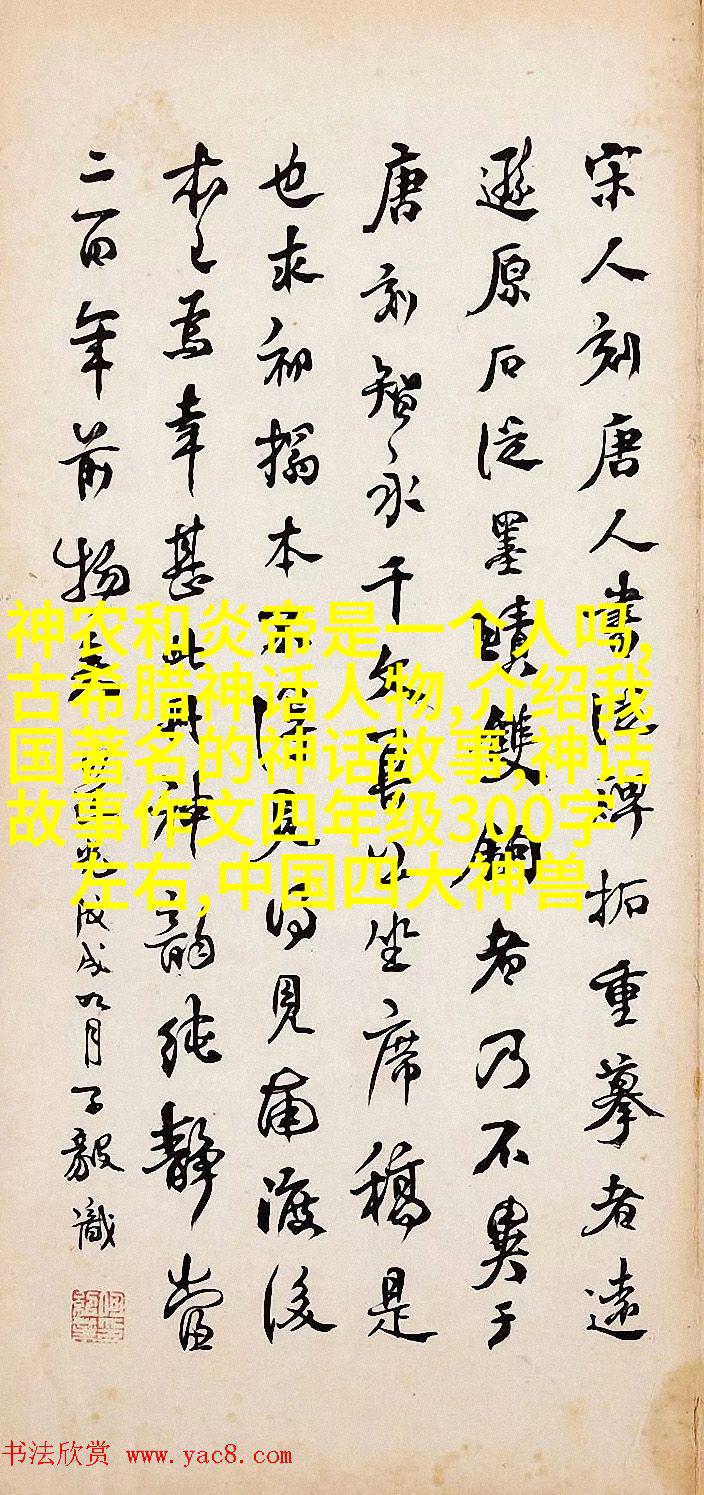 宋人刻唐人書從碑拓重摹者遠
遜原石從墨蹟雙鉤者乃不異于
唐刻智永千文坐席稿是
也求初搨本不得見得見南渡後
本焉幸甚此冊神韵純静當
二百年前物戊戌九月子毅識
神农和炎帝是一个人吗,
古希腊神话人物,介绍我
国著名的神话故事,神话
故事作文四年级300字
左右,中国四大神兽
书法欣赏 www.yac8.com